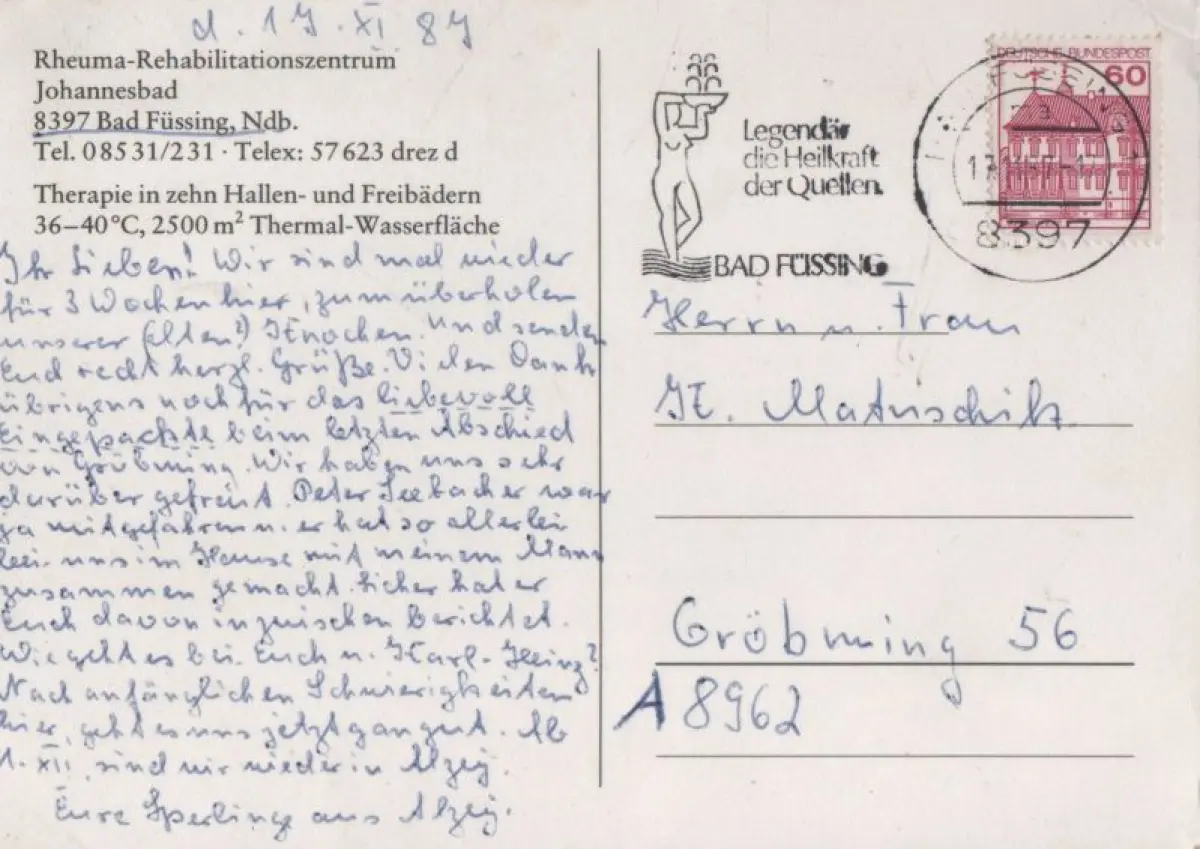 d. 17. XI 87
Rheuma-Rehabilitationszentrum
Johannesbad
8397 Bad Füssing, Ndb.
Tel. 08531/231 · Telex: 57623 drez d
Therapie in zehn Hallen- und Freibädern
36–40 °C, 2500 m² Thermal-Wasserfläche
Ihr Lieben! Wir sind mal wieder
für 3 Wochen hier, zum überholen
unserer (alten?) Knochen. Und senden
Euch recht herzl. Grüße. Vielen Dank
übrigens noch für das liebevoll
Eingepackte beim letzten Abschied
von Gröbming. Wir haben uns sehr
darüber gefreut. Peter Seebacher war
ja mitgefahren u. er hat so allerlei
bei uns im Hause mit meinem Mann
zusammen gemacht. Sicher hat er
Euch davon inzwischen berichtet.
Wie geht es bei Euch u. Karl-Heinz?
Nach anfänglichen Schwierigkeiten
hier, geht es uns jetzt ganz gut. Ab
1. XII. sind wir wieder in Alzey.
Eure Sperlinge aus Alzey.
Legendär
die Heilkraft
der Quellen.
BAD FÜSSING
DEUTSCHE BUNDESPOST
60
8397
Herrn u. Frau
K. Matuschik
Gröbming 56
A 8962